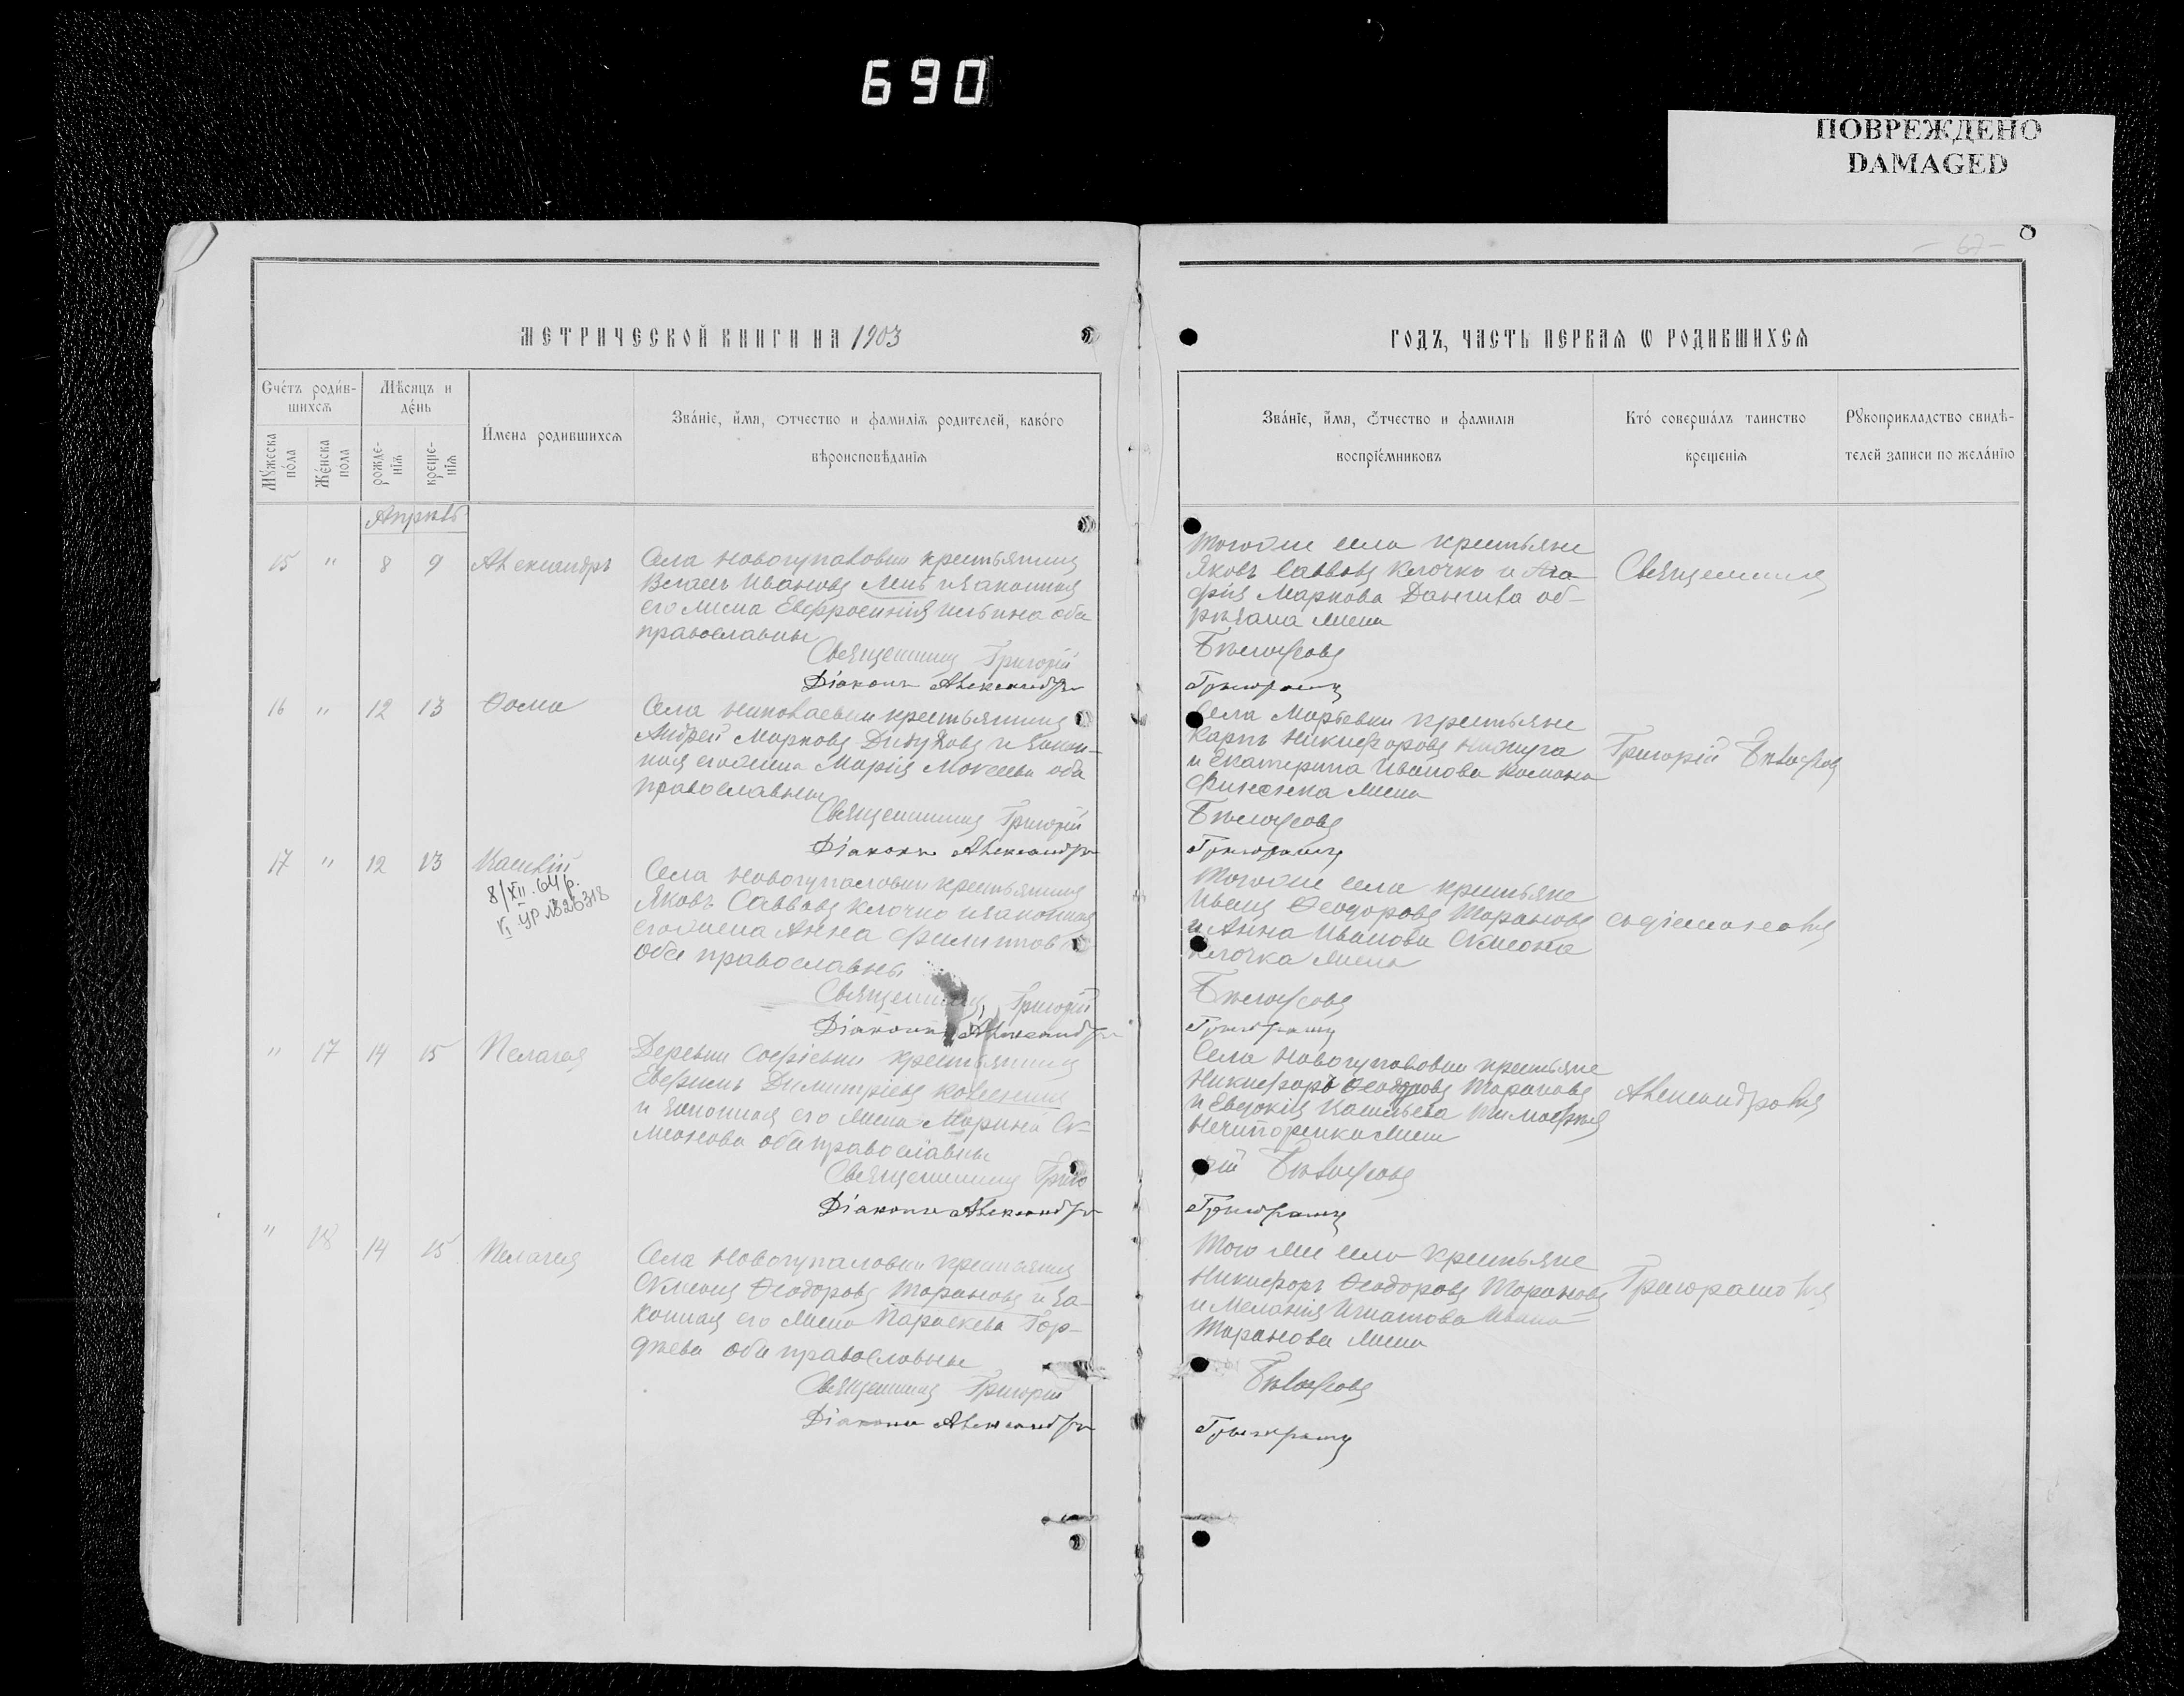 690
ПОВРЕЖДЕНО
DAMAGED
67
МЕТРИЧЕСКОЙ КНИГИ НА 1903
ГОДЪ, ЧАСТЬ ПЕРВАЯ Ѡ РОДИВШИХСЯ
Счетъ родив-
шихся
Мѣсяцъ и
день
Мужеска
пола
Женска
пола
рожде-
нія
креще-
нія
Имена родившихся
Званіе, имя, отчество и фамилія родителей, какого
вѣроисповѣданія
Званіе, имя, отчество и фамилія
воспріемниковъ
Кто совершалъ таинство
крещенія
Рукоприкладство свидѣ-
телей записи по желанію
Апрѣль
15 " 8 9 Александръ
Села Новогупаловки крестьянинъ
Иванов Линь и законная
его жена Евфросинія Ильина оба
православны
Священникъ Григорій
Діаконъ Александръ
Того же села крестьяне
Яковъ Саввовъ Клочко и Ага-
фія Маркова
жена
Бѣлоусовъ
Григорашъ
Священникъ
16 " 12 13 Ѳома
Села Николаевки крестьянинъ
Андрей Марковъ и закон-
ная его жена Марія Мокеева оба
православны
Священникъ Григорій
Діаконъ Александръ
Села Марьевки крестьяне
Карпъ Никифоровъ
и Екатерина Иванова
жена
Бѣлоусовъ
Григорашъ
Григорій Бѣлоусовъ
17 " 12 13 Василій
8/XII.64р.
VI УР №26318
Села Новогупаловки крестьянинъ
Яковъ Саввовъ Клочко и законная
его жена Анна Филиппов
оба православны
Священникъ Григорій
Діаконъ Александръ
Того же села крестьяне
Иванъ Ѳеодоровъ Тарановъ
и Анна Иванова Симеона
Клочка жена
Бѣлоусовъ
Григорашъ
съ діакономъ
" 17 14 15 Пелагея
Деревни Софіевки крестьянинъ
Евфимъ Димитріевъ
и законная его жена Марина Си-
меонова оба православны
Священникъ Григо
Діаконъ Александръ
Села Новогупаловки крестьяне
Никифоръ Ѳеодоровъ Тарановъ
и Евдокія Васильева Тимофея
Нечипоренка жена
рій Бѣлоусовъ
Григорашъ
Александромъ
" 18 14 15 Пелагея
Села Новогупаловки крестьянинъ
Симеонъ Ѳеодоровъ Тарановъ и за-
конная его жена Параскева Гор-
дѣева оба православны
Священникъ Григорій
Діаконъ Александръ
Того же села крестьяне
Никифоръ Ѳеодоровъ Тарановъ
и Меланія Игнатова Ивана
Таранова жена
Бѣлоусовъ
Григорашъ
Григорашомъ